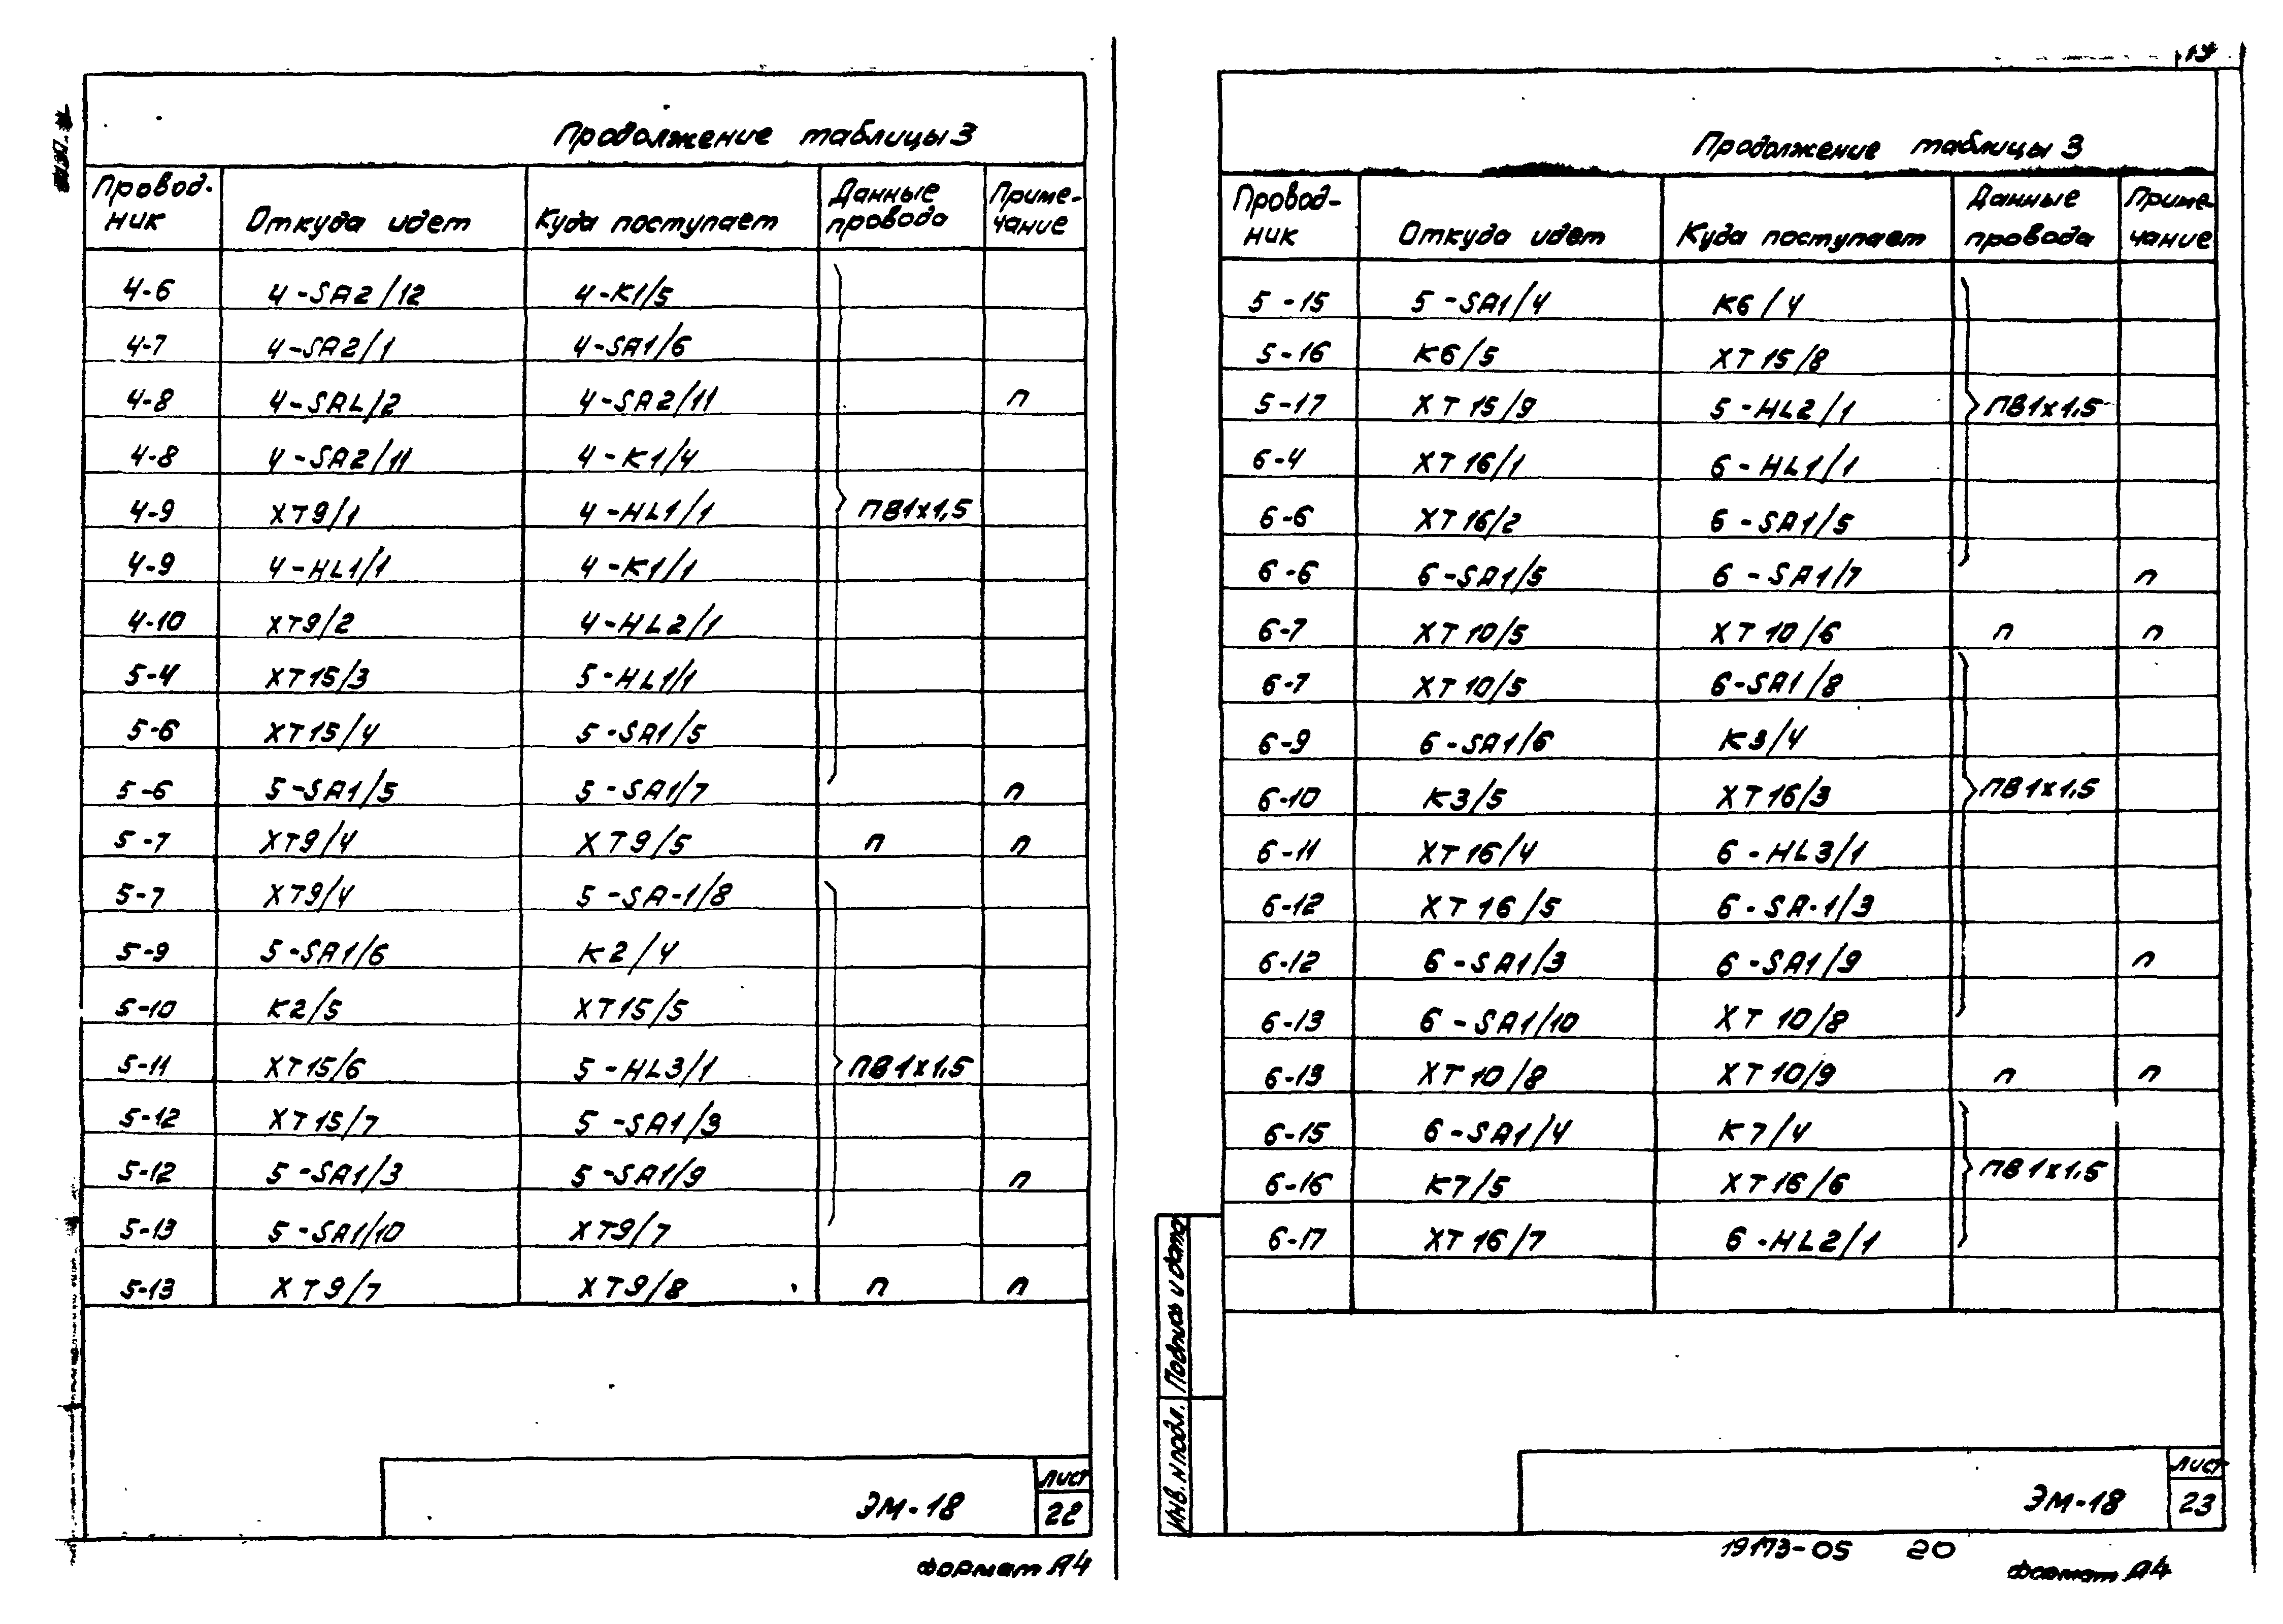 Продолжение таблицы 3
Провод-ник Откуда идет Куда поступает Данные провода Приме-чание
4-6 4-SA2/12 4-K1/5
4-7 4-SA2/1 4-SA1/6
4-8 4-SAL/2 4-SA2/11 п
4-8 4-SA2/11 4-K1/4
4-9 XT9/1 4-HL1/1 ПВ1х1,5
4-9 4-HL1/1 4-K1/1
4-10 XT9/2 4-HL2/1
5-4 XT15/3 5-HL1/1
5-6 XT15/4 5-SA1/5
5-6 5-SA1/5 5-SA1/7 п
5-7 XT9/4 XT9/5 п п
5-7 XT9/4 5-SA-1/8
5-9 5-SA1/6 K2/4
5-10 K2/5 XT15/5
5-11 XT15/6 5-HL3/1 ПВ1х1,5
5-12 XT15/7 5-SA1/3
5-12 5-SA1/3 5-SA1/9 п
5-13 5-SA1/10 XT9/7
5-13 XT9/7 XT9/8 п п
ЭМ-18
Лист
22
Формат А4
19
Продолжение таблицы 3
Провод-ник Откуда идет Куда поступает Данные провода Приме-чание
5-15 5-SA1/4 K6/4
5-16 K6/5 XT15/8
5-17 XT15/9 5-HL2/1 ПВ1х1,5
6-4 XT16/1 6-HL1/1
6-6 XT16/2 6-SA1/5
6-6 6-SA1/5 6-SA1/7 п
6-7 XT10/5 XT10/6 п п
6-7 XT10/5 6-SA1/8
6-9 6-SA1/6 K3/4
6-10 K3/5 XT16/3 ПВ1х1,5
6-11 XT16/4 6-HL3/1
6-12 XT16/5 6-SA-1/3
6-12 6-SA1/3 6-SA1/9 п
6-13 6-SA1/10 XT10/8
6-13 XT10/8 XT10/9 п п
6-15 6-SA1/4 K7/4
6-16 K7/5 XT16/6 ПВ1х1,5
6-17 XT16/7 6-HL2/1
Подпись и дата
Инв. N подл.
ЭМ-18
Лист
23
19173-05 20
Формат А4